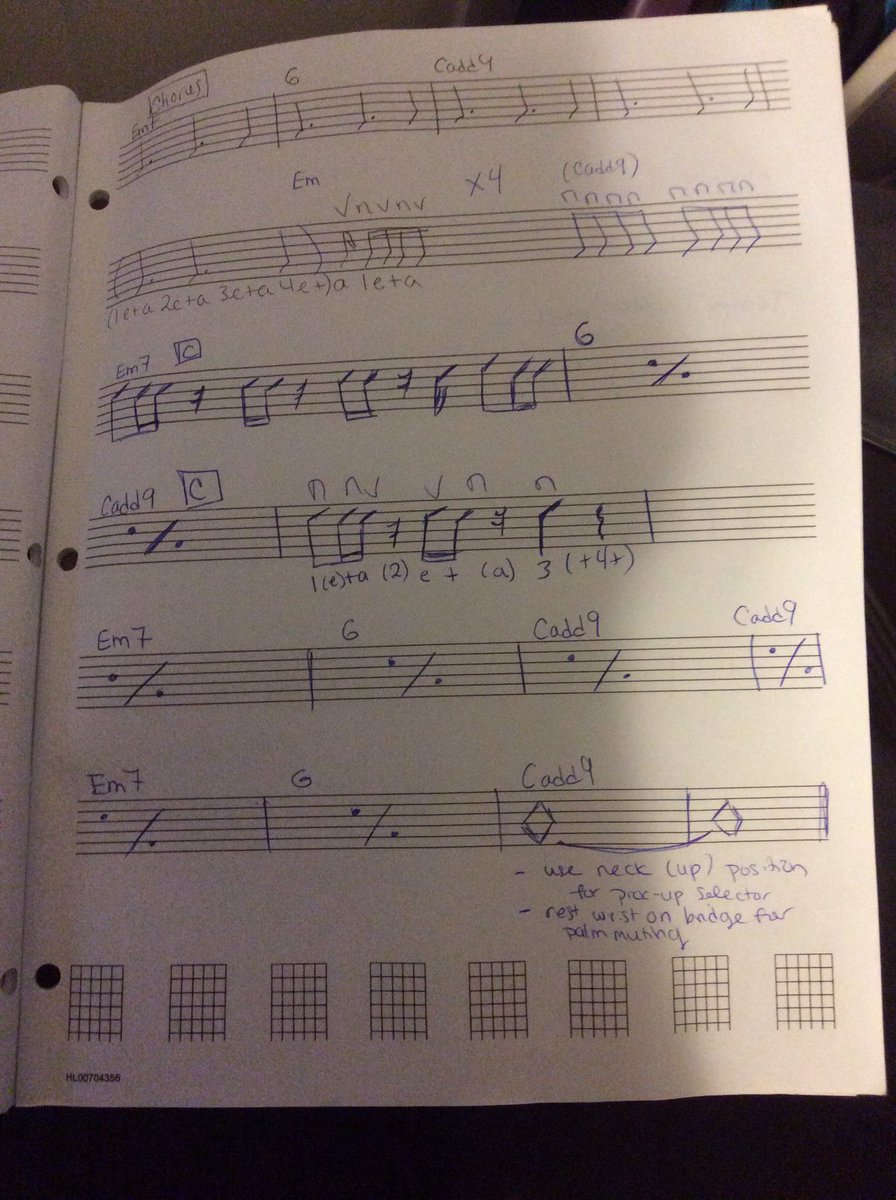 Chorus
Em7 G Cadd9
Em x4 (Cadd9)
(1e+a 2e+a 3e+a 4e+)a 1e+a
Em7 C G
Cadd9 C
1(e)+a (2) e + (a) 3 (+4+)
Em7 G Cadd9 Cadd9
Em7 G Cadd9
- use neck (up) position
for pick-up selector
- rest wrist on badge for
palm muting
HL00704356